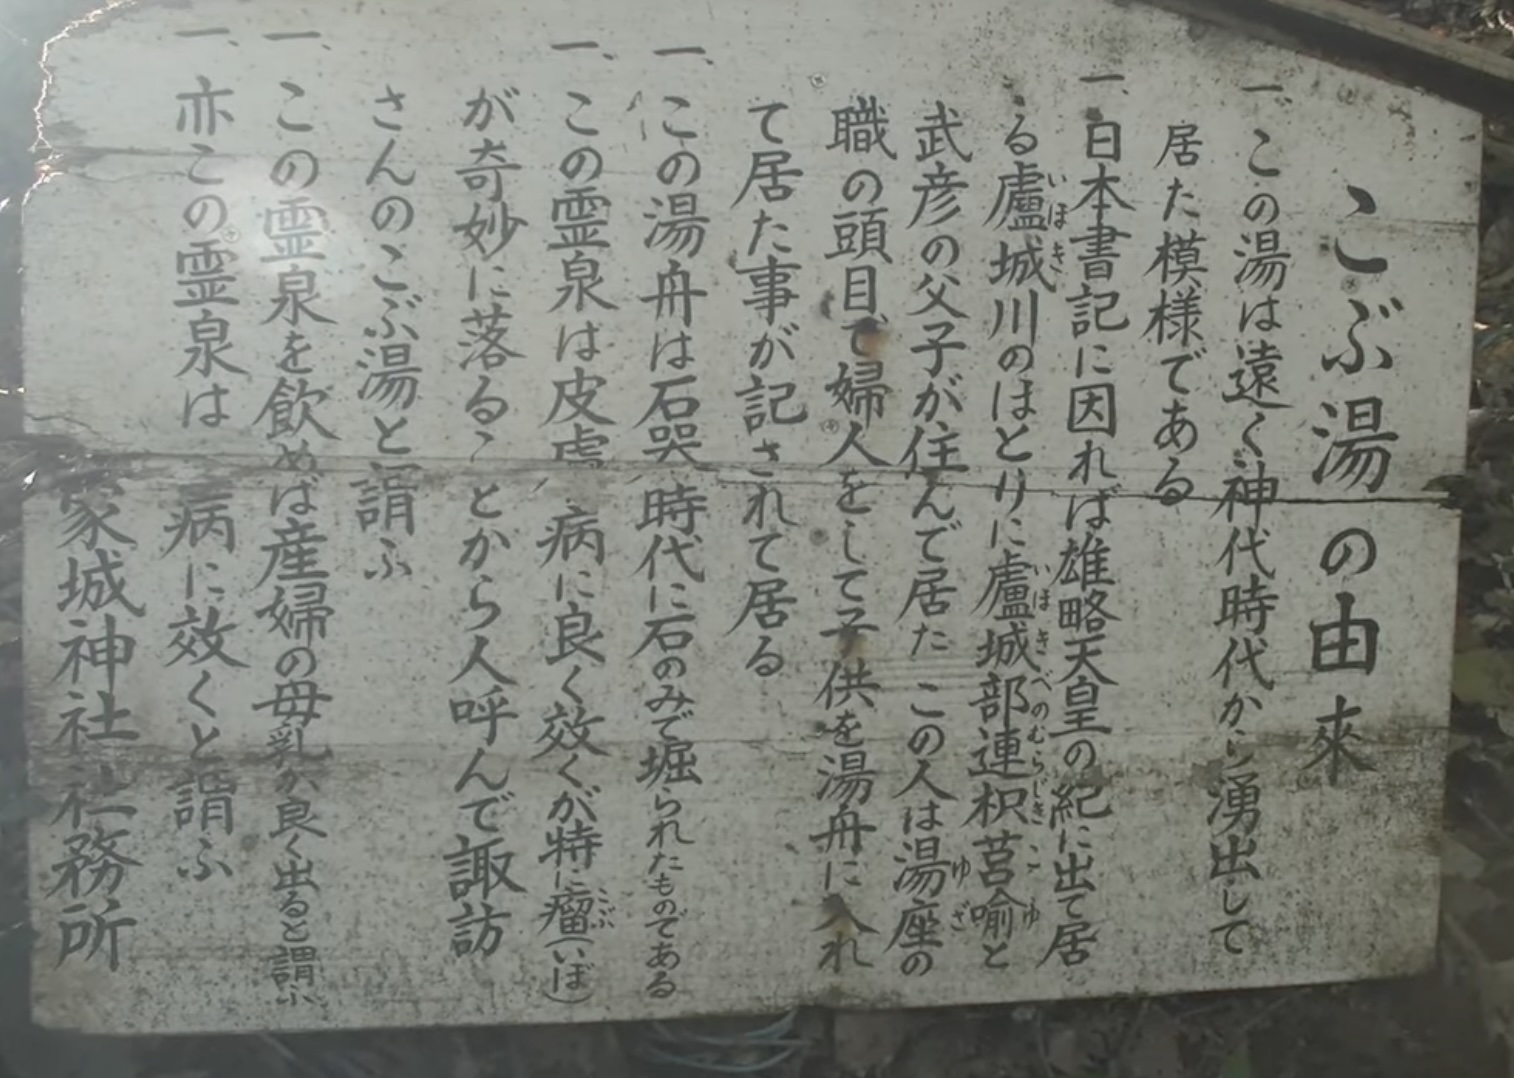 こぶ湯の由來
一、この湯は遠く神代時代から湧出して
居た模様である
一、日本書記に因れば雄略天皇の紀に出て居
る廬城川のほとりに廬城部連枳莒喩と
武彦の父子が住んで居た この人は湯座の
職の頭目で婦人をして子供を湯舟に入れ
て居た事が記されて居る
一、この湯舟は石器時代に石のみで堀られたものである
一、この霊泉は皮膚病に良く效くが特に瘤(いぼ)
が奇妙に落ることから人呼んで諏訪
さんのこぶ湯と謂ふ
一、この霊泉を飲めば産婦の母乳が良く出ると謂ふ
一、亦この霊泉は 病に效くと謂ふ
家城神社社務所